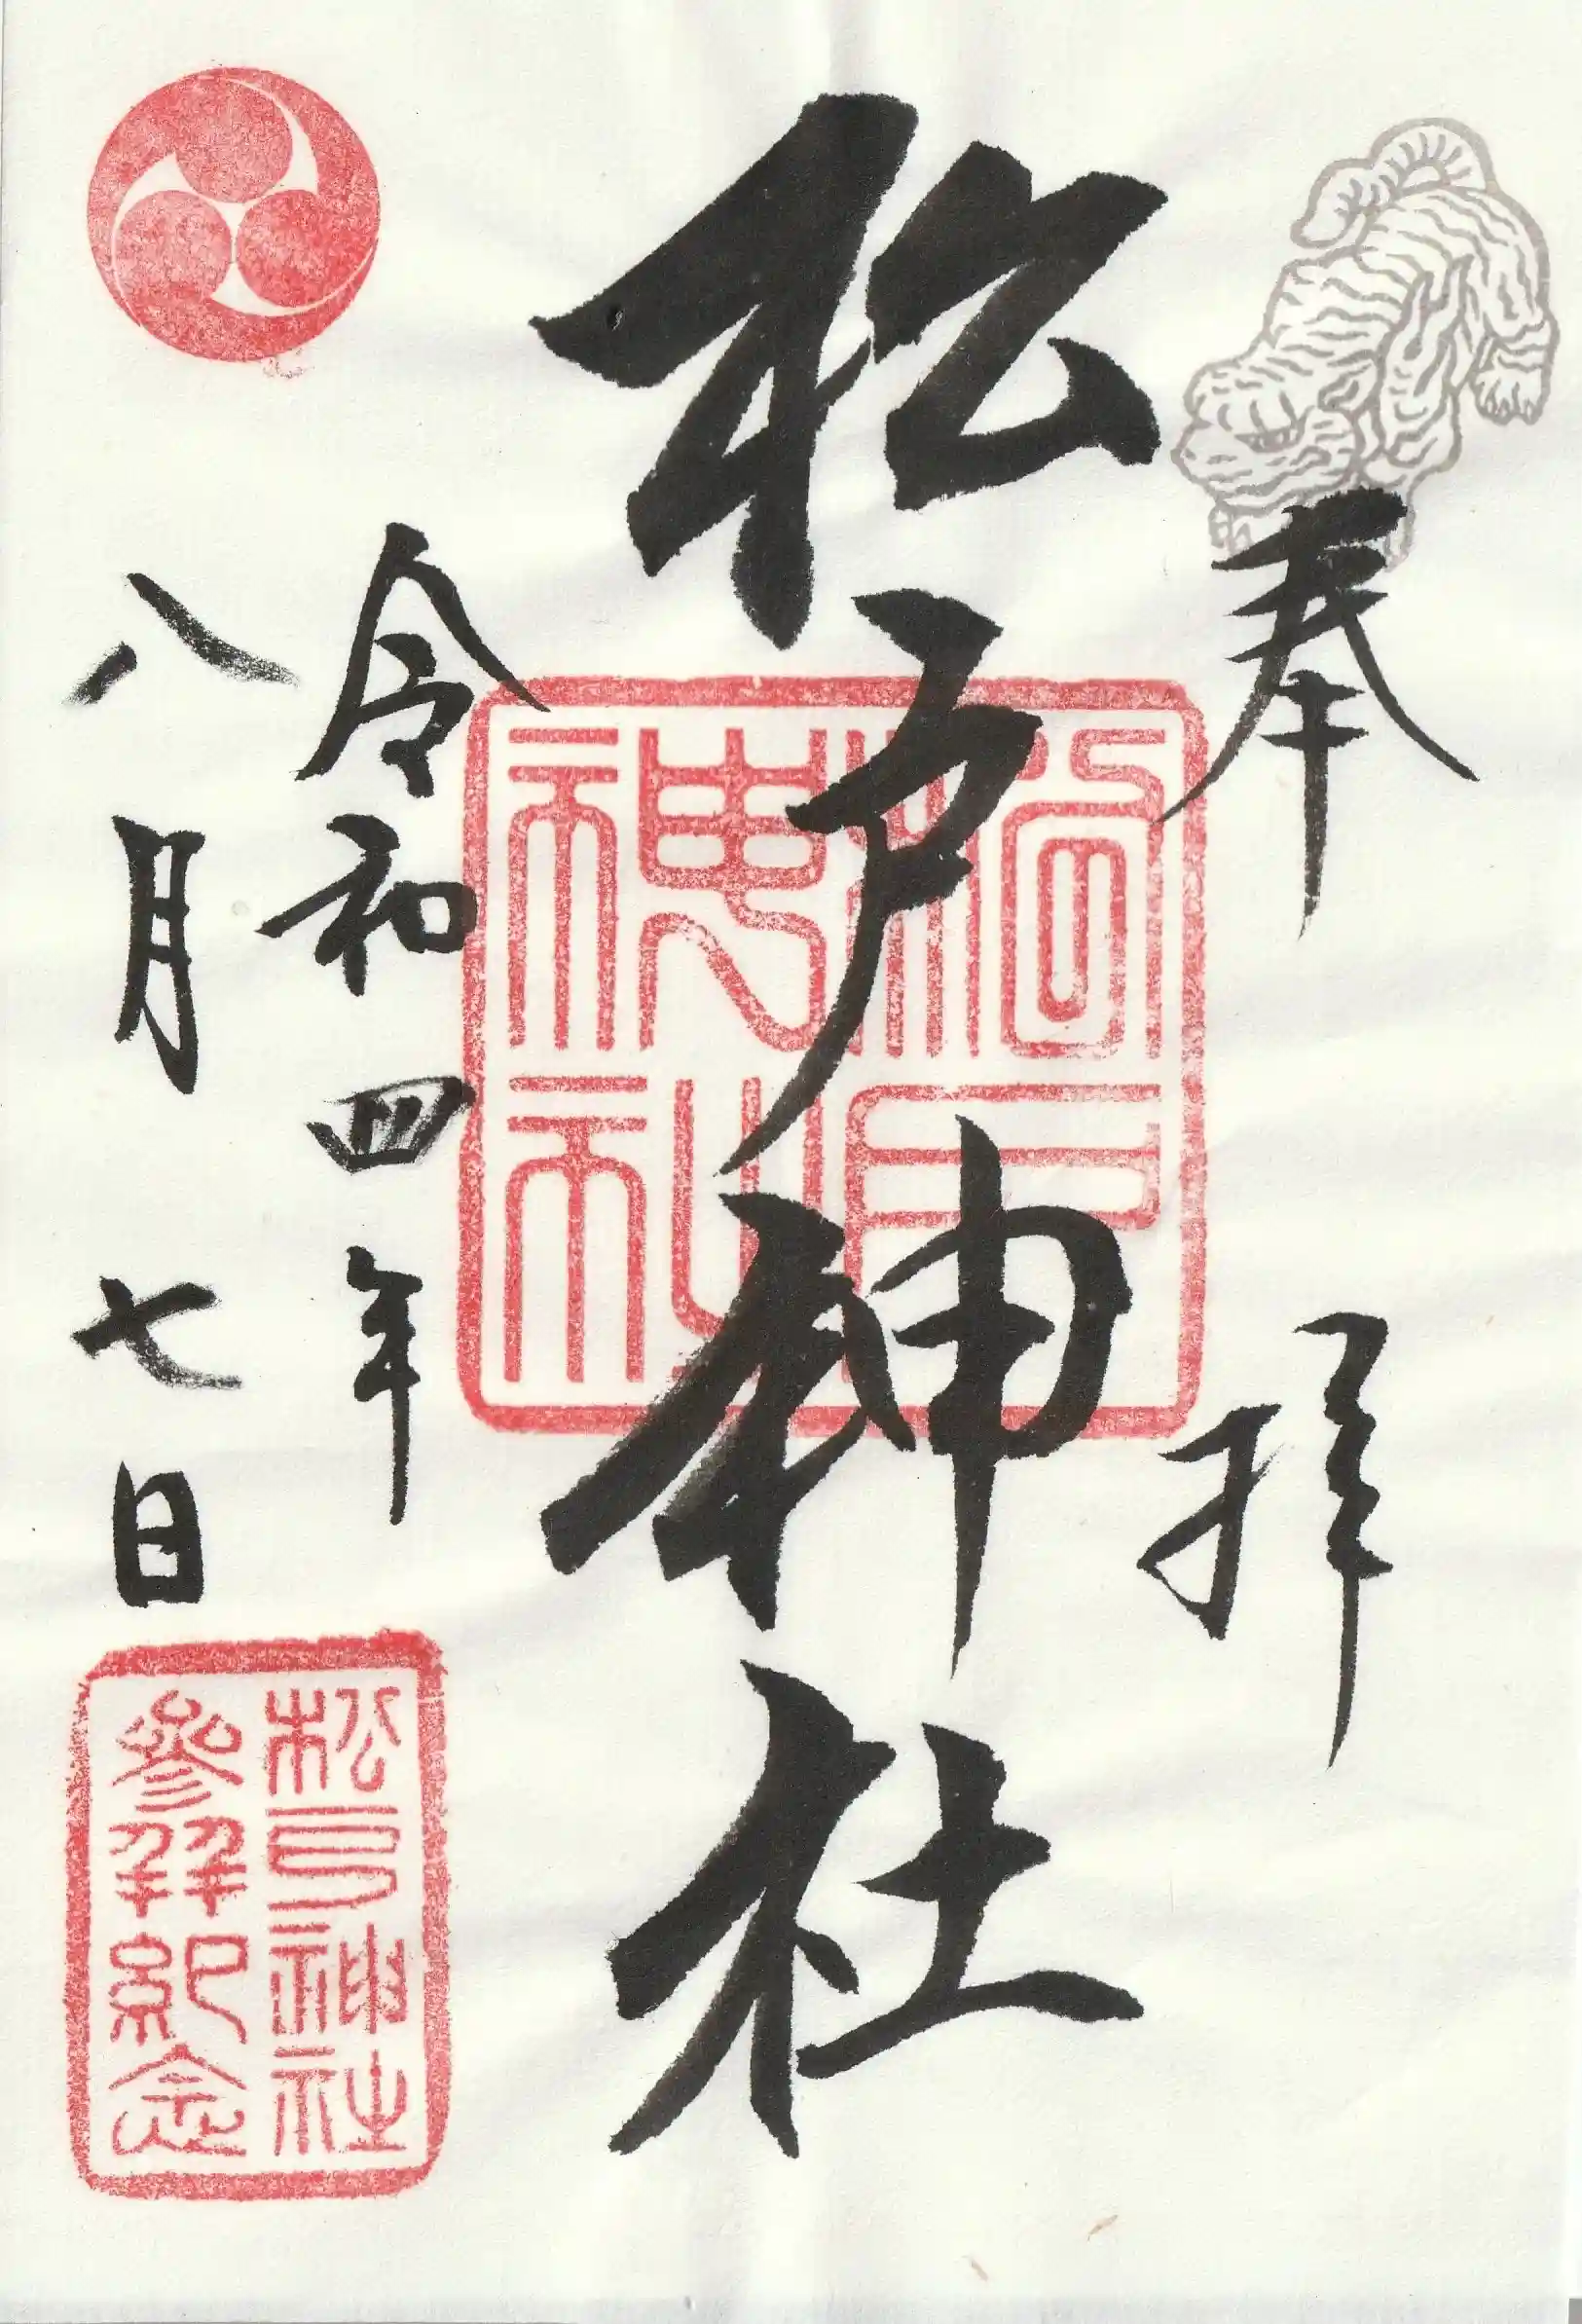 奉拝
松戸神社
松戸
神社
令和四年
八月七日
松戸神社
參拜紀念